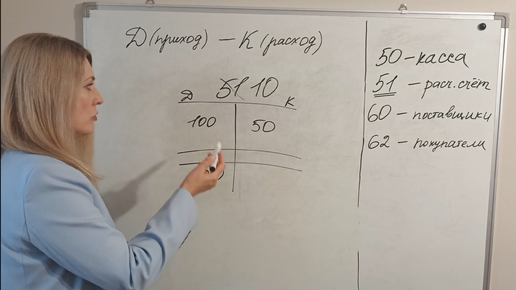 Д (приход) – К (расход)
51 10
Д К
100 50
50 – касса
51 – расч. счёт
60 – поставщики
62 – покупатели